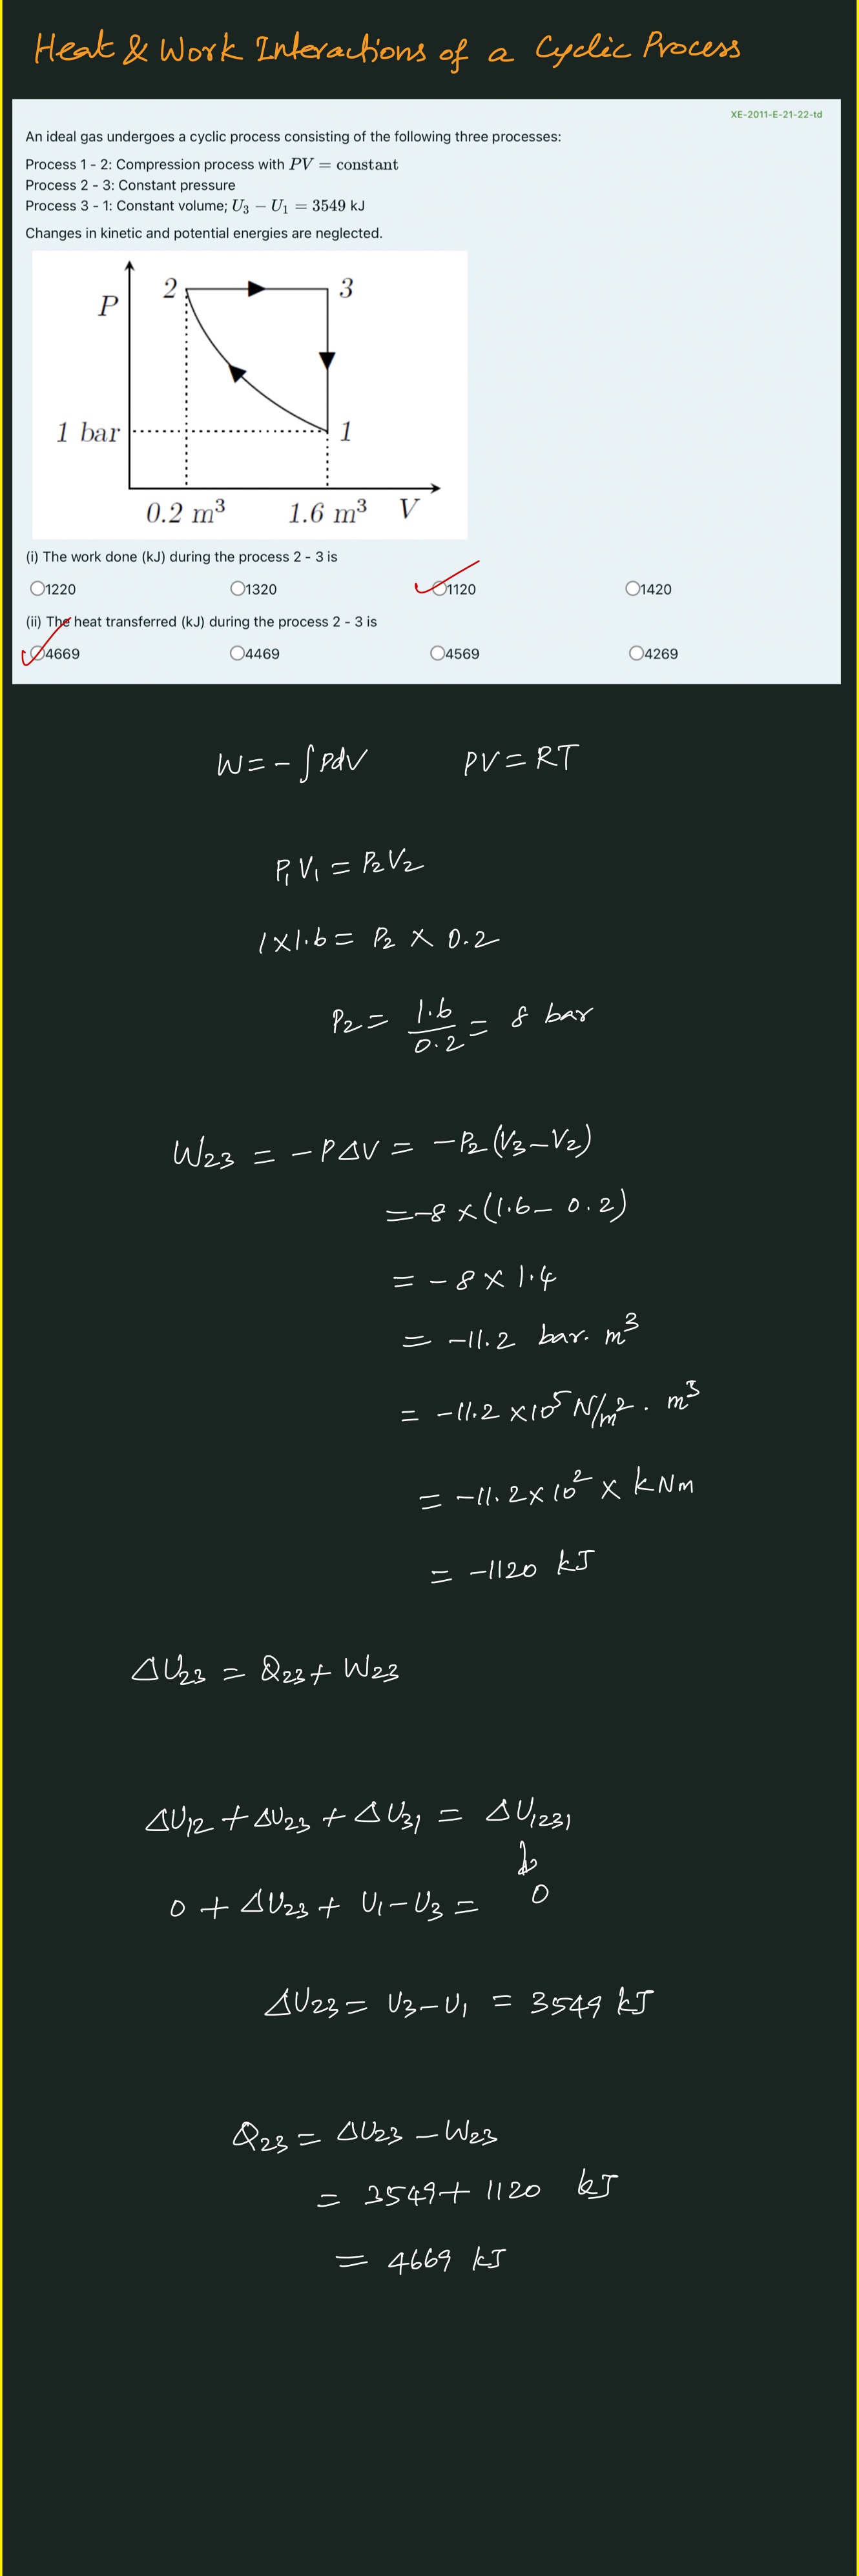 Heat & Work Interactions of a Cyclic Process
XE-2011-E-21-22-td
An ideal gas undergoes a cyclic process consisting of the following three processes:
Process 1 - 2: Compression process with PV = constant
Process 2 - 3: Constant pressure
Process 3 - 1: Constant volume; U₃ − U₁ = 3549 kJ
Changes in kinetic and potential energies are neglected.
2 3
P
1 bar 1
0.2 m³ 1.6 m³ V
(i) The work done (kJ) during the process 2 - 3 is
1220 1320 1120 1420
(ii) The heat transferred (kJ) during the process 2 - 3 is
4669 4469 4569 4269
W = - ∫ PdV PV = RT
P₁V₁ = P₂V₂
1×1.6 = P₂ × 0.2
P₂ = 1.6/0.2 = 8 bar
W₂₃ = -PΔV = -P₂(V₃-V₂)
= -8 × (1.6 - 0.2)
= -8 × 1.4
= -11.2 bar. m³
= -11.2 ×10⁵ N/m² . m³
= -11.2×10² × kNm
= -1120 kJ
ΔU₂₃ = Q₂₃ + W₂₃
ΔU₁₂ + ΔU₂₃ + ΔU₃₁ = ΔU₁₂₃₁
0 + ΔU₂₃ + U₁-U₃ = 0
ΔU₂₃ = U₃-U₁ = 3549 kJ
Q₂₃ = ΔU₂₃ - W₂₃
= 3549 + 1120 kJ
= 4669 kJ